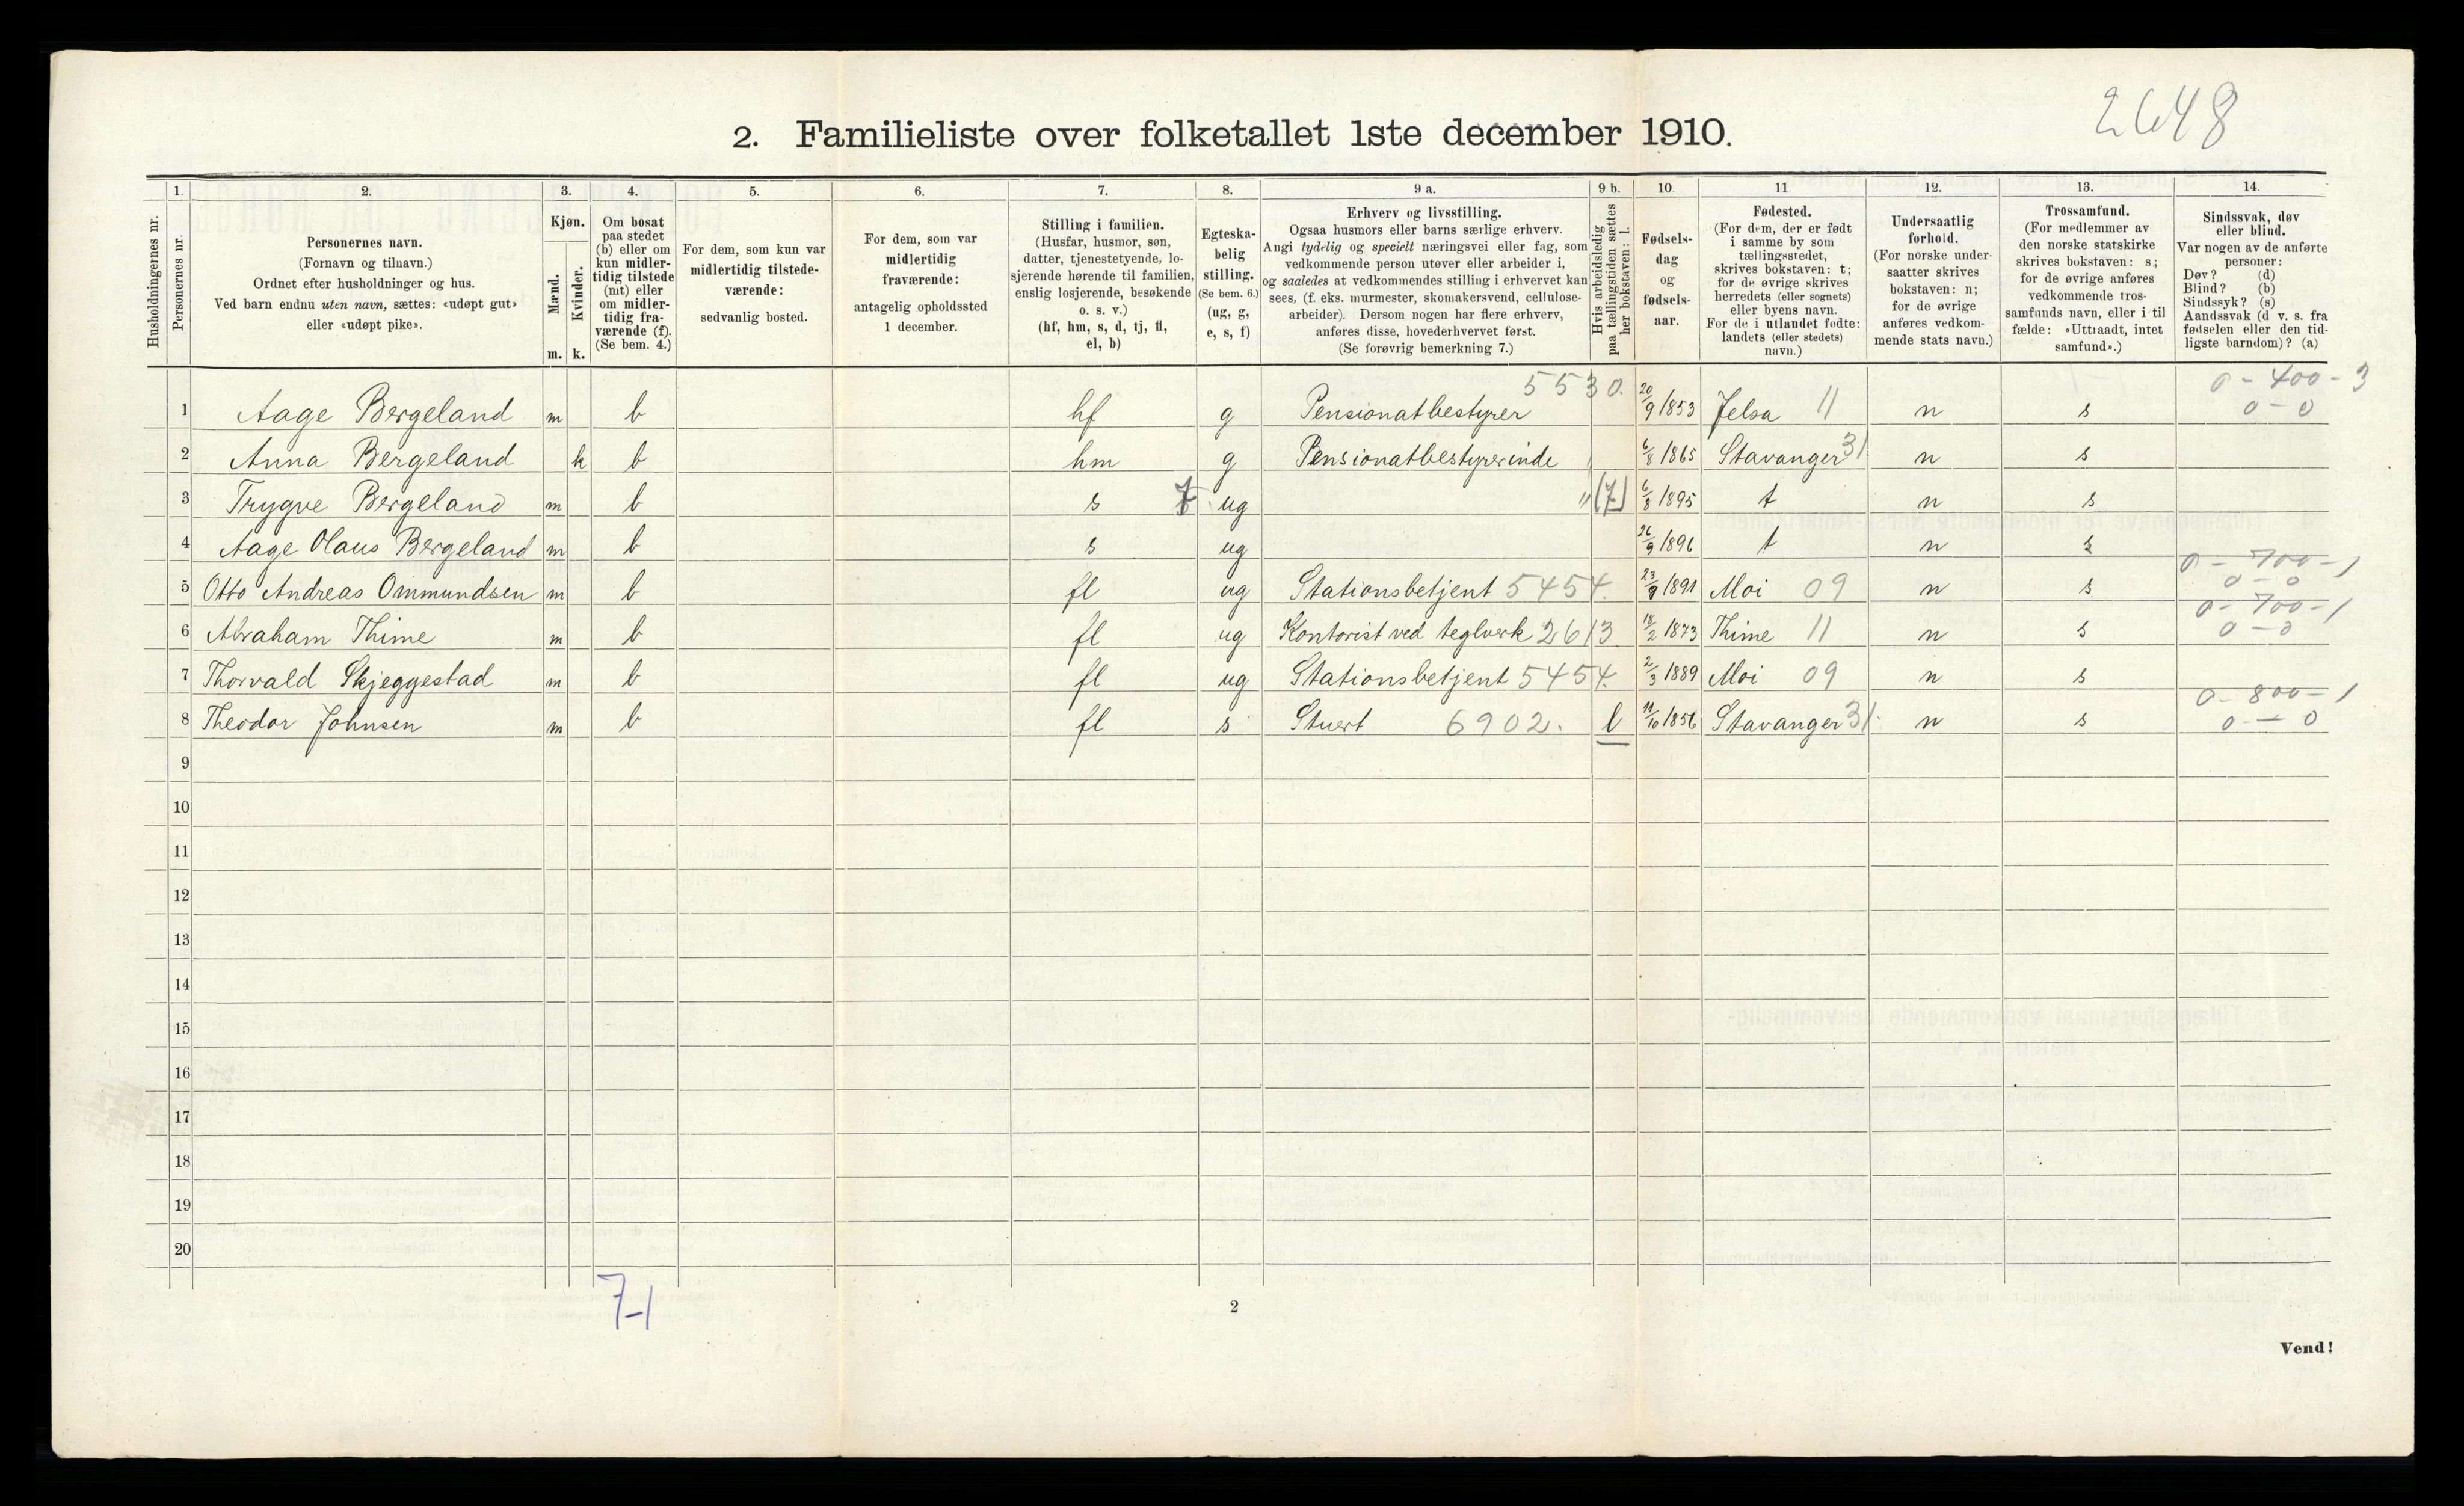 2648
2. Familieliste over folketallet 1ste december 1910.
Husholdningernes nr.
1.
Personernes nr.
2.
Personernes navn.
(Fornavn og tilnavn.)
Ordnet efter husholdninger og hus.
Ved barn endnu uten navn, sættes: «udøpt gut»
eller «udøpt pike».
3.
Kjøn.
Mænd.
Kvinder.
m. k.
4.
Om bosat
paa stedet
(b) eller om
kun midler-
tidig tilstede
(mt) eller
om midler-
tidig fra-
værende (f).
(Se bem. 4.)
5.
For dem, som kun var
midlertidig tilstede-
værende:
sedvanlig bosted.
6.
For dem, som var
midlertidig
fraværende:
antagelig opholdssted
1 december.
7.
Stilling i familien.
(Husfar, husmor, søn,
datter, tjenestetyende, lo-
sjerende hørende til familien,
enslig losjerende, besøkende
o. s. v.)
(hf, hm, s, d, tj, fl,
el, b)
8.
Egteska-
belig
stilling.
(Se bem. 6.)
(ug, g,
e, s, f)
9 a.
Erhverv og livsstilling.
Ogsaa husmors eller barns særlige erhverv.
Angi tydelig og specielt næringsvei eller fag, som
vedkommende person utøver eller arbeider i,
og saaledes at vedkommendes stilling i erhvervet kan
sees, (f. eks. murmester, skomakersvend, cellulose-
arbeider). Dersom nogen har flere erhverv,
anføres disse, hovederhvervet først.
(Se forøvrig bemerkning 7.)
9 b.
Hvis arbeidsledig
paa tællingstiden sættes
her bokstaven: l.
10.
Fødsels-
dag
og
fødsels-
aar.
11.
Fødested.
(For dem, der er født
i samme by som
tællingsstedet,
skrives bokstaven: t;
for de øvrige skrives
herredets (eller sognets)
eller byens navn.
For de i utlandet fødte:
landets (eller stedets)
navn.)
12.
Undersaatlig
forhold.
(For norske under-
saatter skrives
bokstaven: n;
for de øvrige
anføres vedkom-
mende stats navn.)
13.
Trossamfund.
(For medlemmer av
den norske statskirke
skrives bokstaven: s;
for de øvrige anføres
vedkommende tros-
samfunds navn, eller i til
fælde: «Uttraadt, intet
samfund».)
14.
Sindssvak, døv
eller blind.
Var nogen av de anførte
personer:
Døv? (d)
Blind? (b)
Sindssyk? (s)
Aandssvak (d v. s. fra
fødselen eller den tid-
ligste barndom)? (a)
5530. 0 - 400 - 3
1 Aage Bergeland m b hf g Pensionatbestyrer 20/9 1853 Jelsa 11 n s 0 - 0
2 Anna Bergeland k b hm g Pensionatbestyrerinde 6/8 1865 Stavanger 31 n s
3 Trygve Bergeland m b s 7 ug " (7) 6/8 1895 t n s
4 Aage Olaus Bergeland m b s ug 26/9 1896 t n s
0 - 700 - 1
5 Otto Andreas Ommundsen m b fl ug Stationsbetjent 5454. 23/9 1891 Moi 09 n s 0 - 0
0 - 700 - 1
6 Abraham Thime m b fl ug Kontorist ved teglverk 2613 18/2 1873 Thime 11 n s 0 - 0
7 Thorvald Skjeggestad m b fl ug Stationsbetjent 5454. 2/3 1889 Moi 09 n s
0 - 800 - 1
8 Theodor Johnsen m b fl s Stuert 6902. l 11/10 1856 Stavanger 31. n s 0 - 0
9
10
11
12
13
14
15
16
17
18
19
20
7-1
2
Vend!